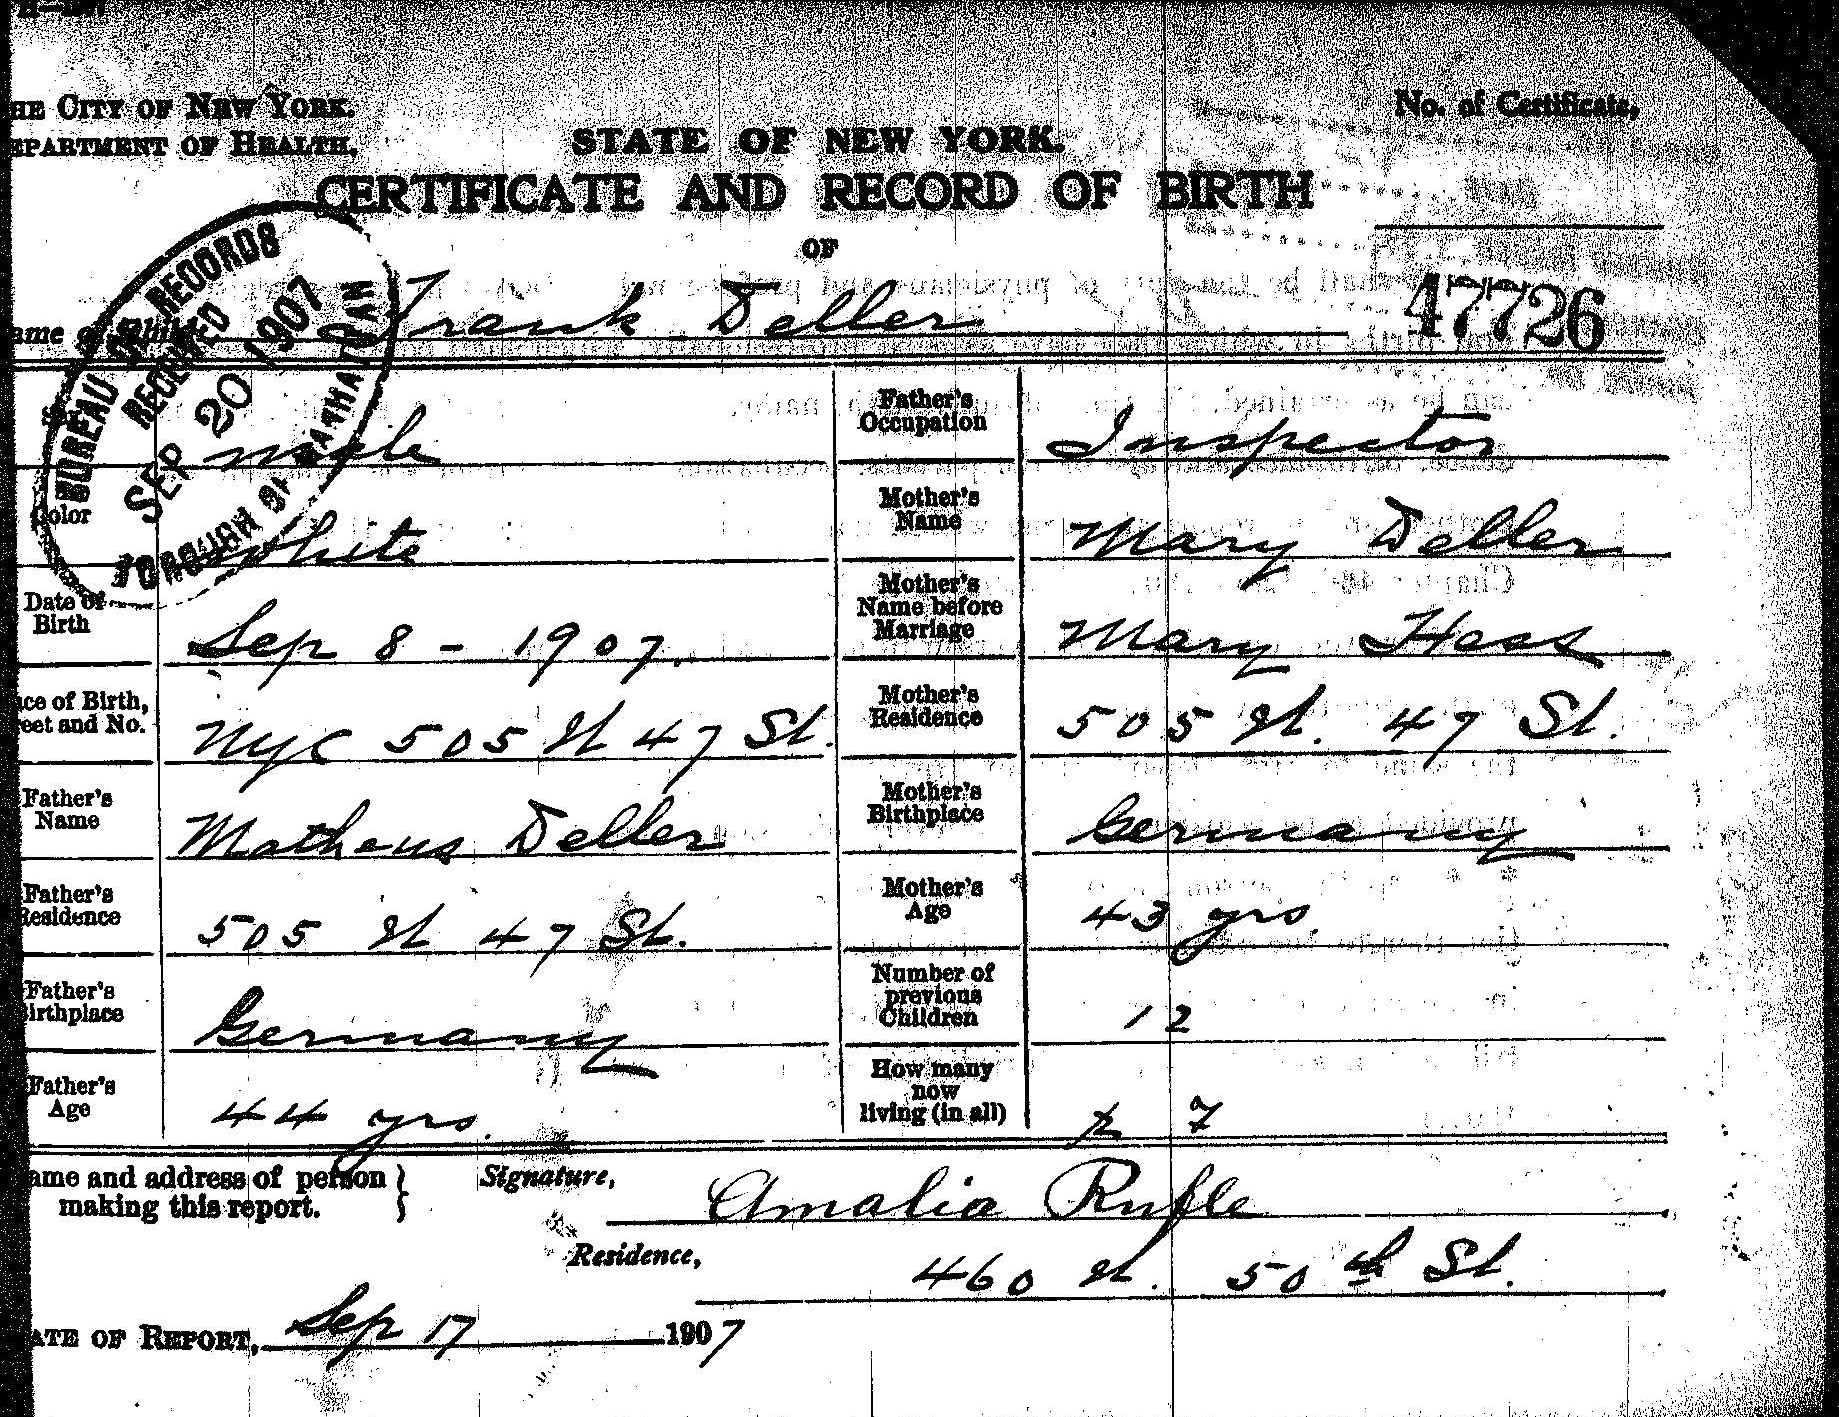 HE CITY OF NEW YORK.
EPARTMENT OF HEALTH.
No. of Certificate,
STATE OF NEW YORK.
CERTIFICATE AND RECORD OF BIRTH
OF
47726
ame of Child Frank Deller
BUREAU OF RECORDS
RECEIVED
SEP 20 1907
BOROUGH OF MANHATTAN
male
Father's Occupation Inspector
Color white
Mother's Name Mary Deller
Date of Birth Sep 8 - 1907.
Mother's Name before Marriage Mary Hess
ace of Birth, eet and No. NYC 505 W 47 St.
Mother's Residence 505 W. 47 St.
Father's Name Matheus Deller
Mother's Birthplace Germany
Father's Residence 505 W 47 St.
Mother's Age 43 yrs.
Father's Birthplace Germany
Number of previous Children 12
Father's Age 44 yrs.
How many now living (in all) 7
ame and address of person making this report.
Signature, Amalia Rufle
Residence, 460 W. 50th St.
ATE OF REPORT, Sep 17 1907